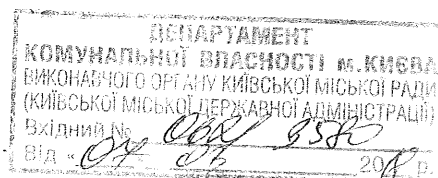 ДЕПАРТАМЕНТ
КОМУНАЛЬНОЇ ВЛАСНОСТІ м.КИЄВА
ВИКОНАВЧОГО ОРГАНУ КИЇВСЬКОЇ МІСЬКОЇ РАДИ
(КИЇВСЬКОЇ МІСЬКОЇ ДЕРЖАВНОЇ АДМІНІСТРАЦІЇ)
Вхідний №
Від « 07 20 р.